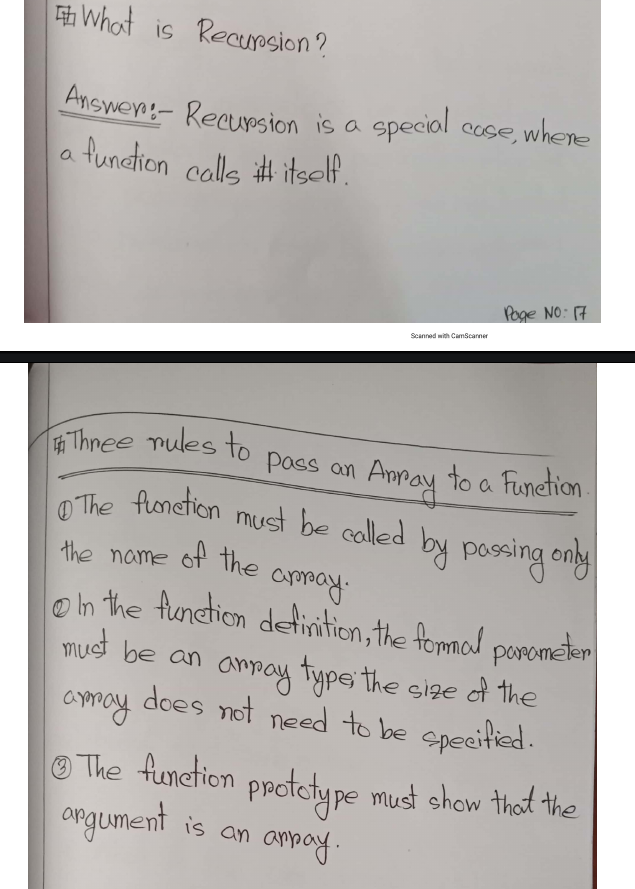 What is Recursion?
Answer:- Recursion is a special case, where
a function calls itself.
Page NO: 17
Scanned with CamScanner
Three rules to pass an Array to a Function.
① The function must be called by passing only
the name of the array.
② In the function definition, the formal parameter
must be an array type; the size of the
array does not need to be specified.
③ The function prototype must show that the
argument is an array.